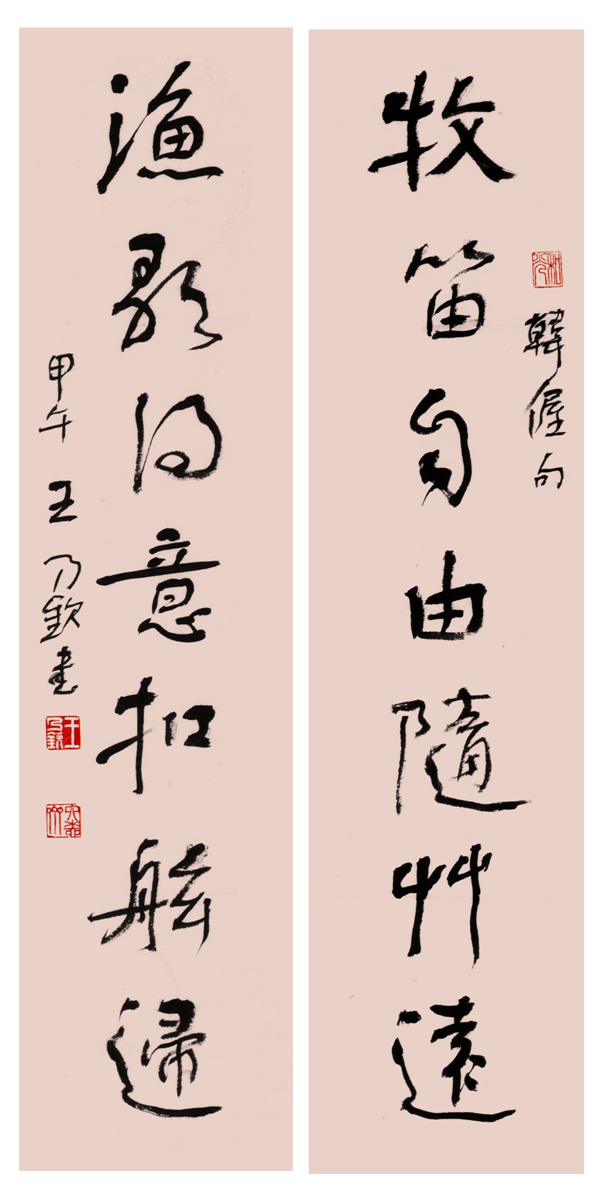 韓偓句
牧笛自由隨艸遠
漁歌得意扣舷歸
甲午 王乃欽書